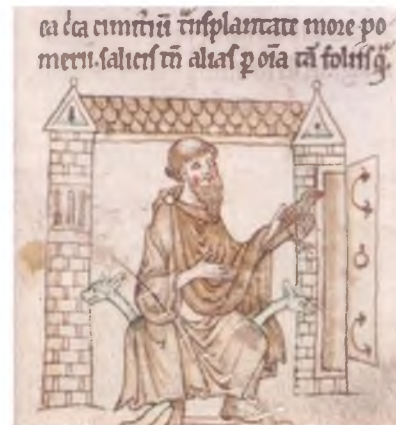 ea c̅ca cimit̅iu̅ t̅nsplantate more po
merii. salices tn̅ alias ꝑ oi̅a ta̅ foliis q̅.